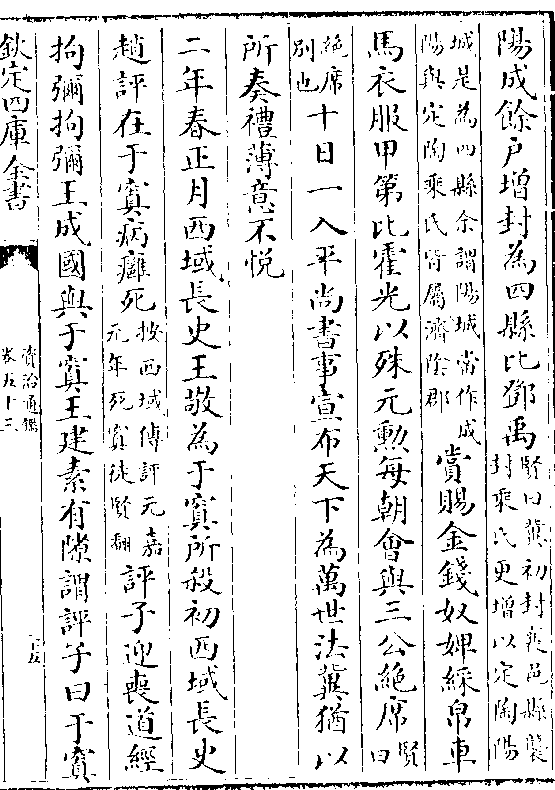 陽成餘戶增封為四縣比鄧禹賢曰冀初封襄邑縣襲封乘氏更增以定陶陽
城是為四縣余謂陽城當作成陽與定陶乘氏皆屬濟陰郡賞賜金錢奴婢綵帛車
馬衣服甲第比霍光以殊元勲每朝會與三公絶席賢曰
絶席别也十日一入平尚書事宣布天下為萬世法冀猶以
所奏禮薄意不悦
二年春正月西域長史王敬為于窴所殺初西域長史
趙評在于窴病癰死按西域傳評元嘉元年死窴徒賢翻評子迎喪道經
拘彌拘彌王成國與于窴王建素有隙謂評子曰于窴
欽定四庫全書
資治通鑑
卷五十三
十五